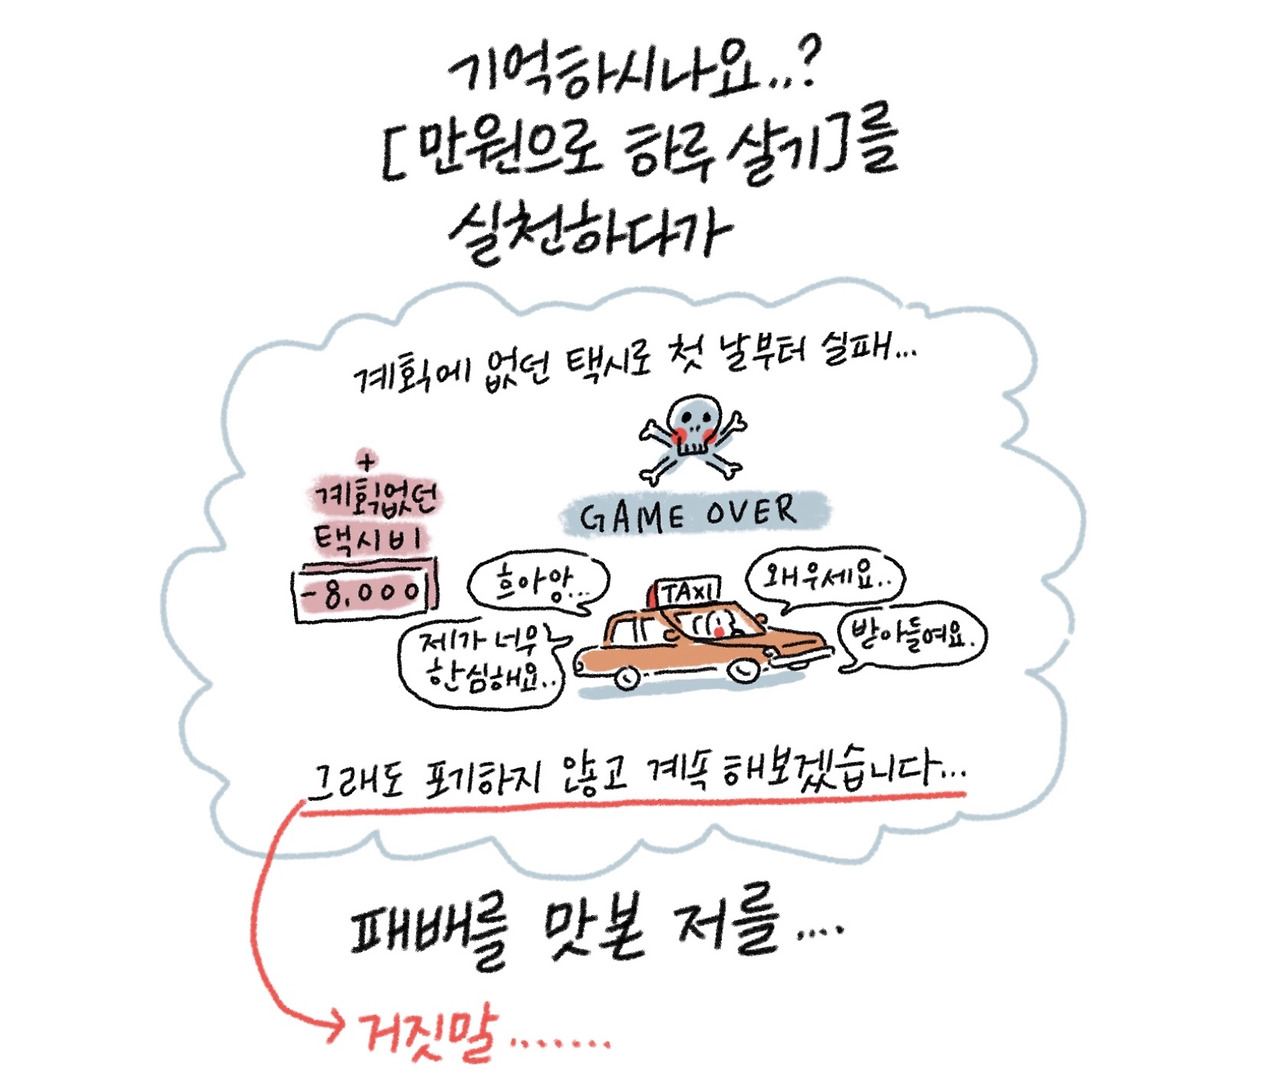 기억하시나요..?
[만원으로 하루 살기]를
실천하다가
계획에 없던 택시로 첫 날부터 실패...
+
계획없던
택시비
-8,000
GAME OVER
흐아앙...
제가 너무
한심해요..
TAXI
왜 우세요..
받아들여요.
그래도 포기하지 않고 계속 해보겠습니다...
패배를 맛본 저를....
거짓말.......